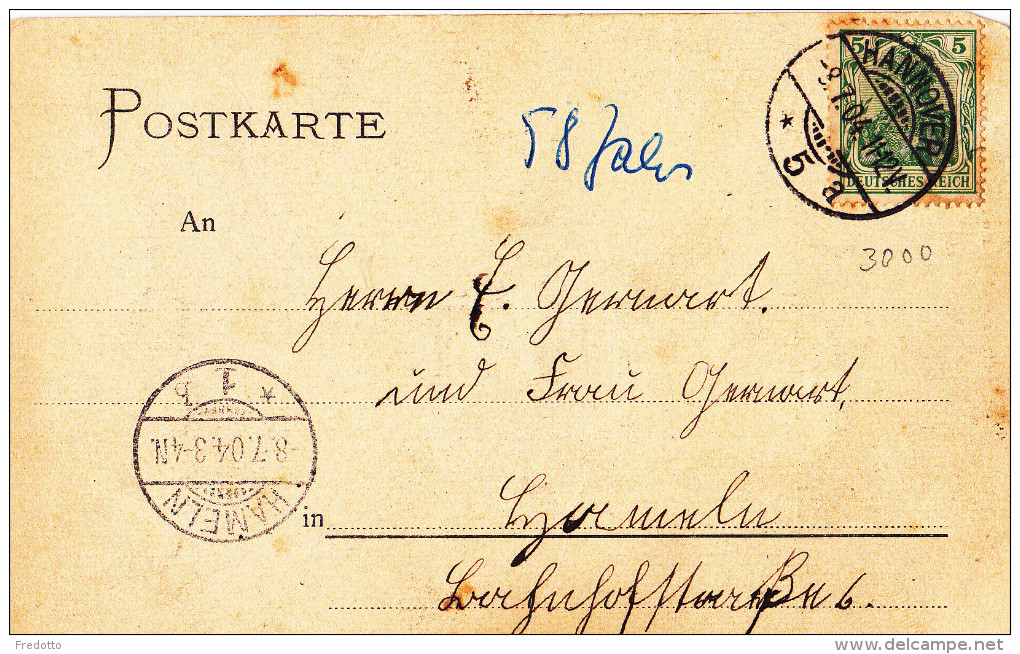 POSTKARTE
58 Jahr
5 5
DEUTSCHES REICH
HANNOVER
-8.7.04.11-12V.
* 5 a
3000
An
Herrn E. Gernart.
und Frau Gernart,
* 1 b
-8.7.04.3-4N.
HAMELN
in Hameln
Bahnhofstraße 6.
Fredotto
www.delcampe.net